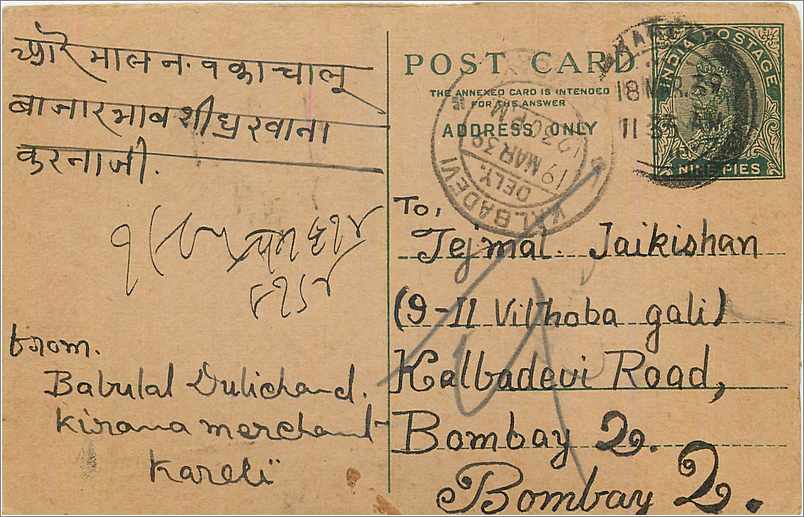 खोरै माल न. १ का चालू
बाजार भाव शीघ्र रवाना
करना जी.
from.
Babulal Dulichand.
Kirana merchant
Kareli
POST CARD
THE ANNEXED CARD IS INTENDED
FOR THE ANSWER
ADDRESS ONLY
INDIA POSTAGE
NINE PIES
18 MAR. 39
11 35 AM
KALBADEVI
DELY.
19 MAR 39
12 30 PM
To,
Tejmal Jaikishan
(9-11 Vithoba gali)
Kalbadevi Road,
Bombay 2.
Bombay 2.